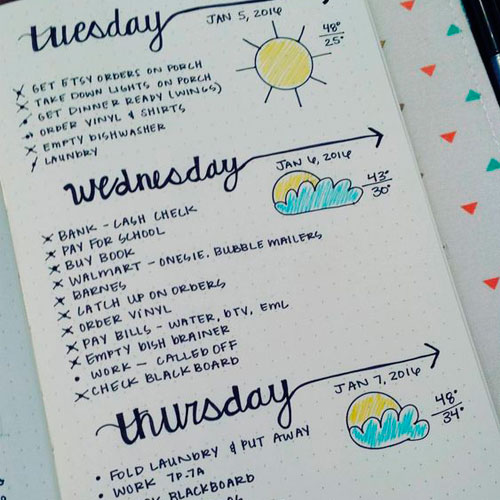 tuesday
JAN 5, 2016
48°
25°
GET ETSY ORDERS ON PORCH
TAKE DOWN LIGHTS ON PORCH
GET DINNER READY (WINGS)
ORDER VINYL & SHIRTS
EMPTY DISHWASHER
LAUNDRY
wednesday
JAN 6, 2016
43°
30°
BANK - CASH CHECK
PAY FOR SCHOOL
BUY BOOK
WALMART - ONESIE, BUBBLE MAILERS
BARNES
CATCH UP ON ORDERS
ORDER VINYL
PAY BILLS - WATER, DTV, EML
EMPTY DISH DRAINER
WORK - CALLED OFF
CHECK BLACKBOARD
thursday
JAN 7, 2016
48°
34°
FOLD LAUNDRY & PUT AWAY
WORK 7P-7A
BLACKBOARD